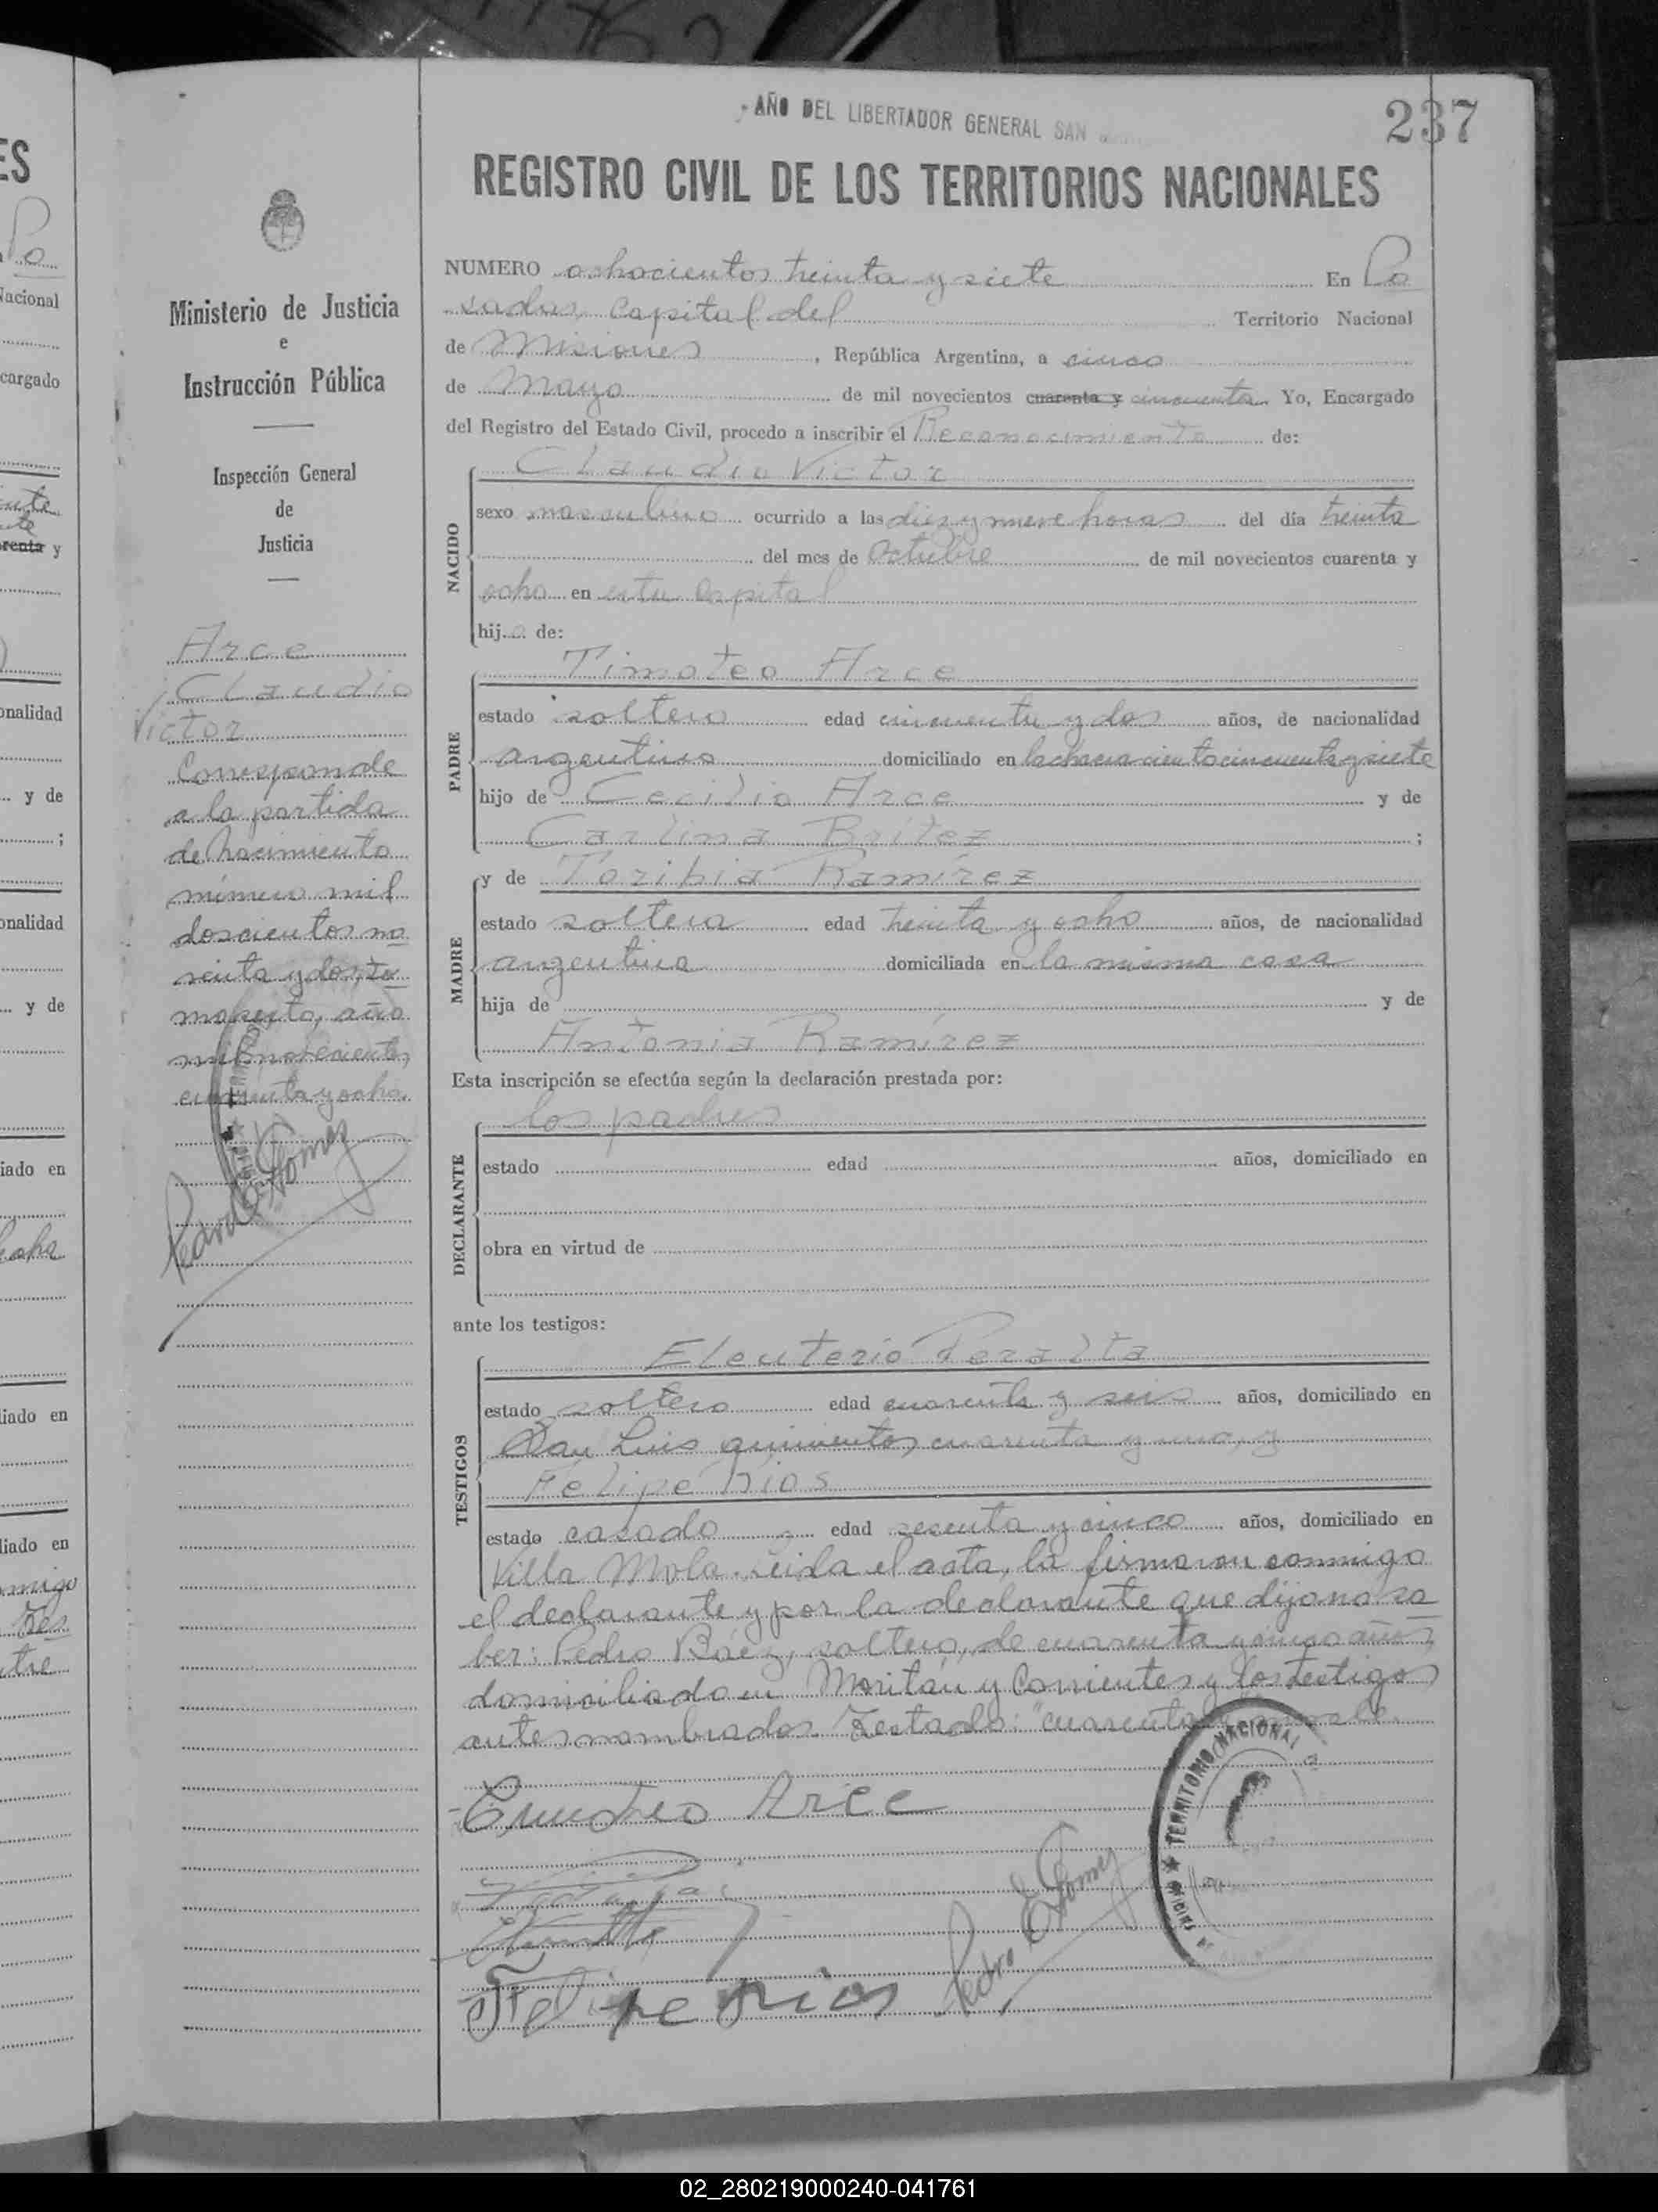 ES
Po
Nacional
cargado
renta y
onalidad
y de
;
onalidad
y de
iado en
ocho
liado en
liado en
AÑO DEL LIBERTADOR GENERAL SAN
237
REGISTRO CIVIL DE LOS TERRITORIOS NACIONALES
Ministerio de Justicia
e
Instrucción Pública
Inspección General
de
Justicia
Arce
Claudio
Victor
Corresponde
a la partida
de nacimiento
número mil
doscientos no
venta y dos, to
mo sexto, año
mil novecientos
cuarenta y ocho.
Pedro E. Gomez
NUMERO ochocientos treinta y siete En Po
sadas, Capital del Territorio Nacional
de Misiones, República Argentina, a cinco
de Mayo de mil novecientos cuarenta y cincuenta Yo, Encargado
del Registro del Estado Civil, procedo a inscribir el Reconocimiento de:
NACIDO
Claudio Victor
sexo masculino ocurrido a las diez y nueve horas del día treinta
del mes de Octubre de mil novecientos cuarenta y
ocho en esta Capital
hijo de:
PADRE
Timoteo Arce
estado soltero edad cincuenta y dos años, de nacionalidad
argentino domiciliado en la chacra ciento cincuenta y siete
hijo de Cecilio Arce y de
Carlina Britez ;
MADRE
y de Toribia Ramírez
estado soltera edad treinta y ocho años, de nacionalidad
argentina domiciliada en la misma casa
hija de y de
Antonia Ramírez
Esta inscripción se efectúa según la declaración prestada por:
DECLARANTE
los padres
estado edad años, domiciliado en
obra en virtud de
ante los testigos:
TESTIGOS
Eleuterio Peralta
estado soltero edad cuarenta y seis años, domiciliado en
San Luis quinientos cuarenta y uno, y
Felipe Rios
estado casado edad sesenta y cinco años, domiciliado en
Villa Mola. Leida el acta, la firmaron conmigo
el declarante y por la declarante que dijo no sa
ber: Pedro Báez, soltero, de cuarenta y cinco años,
domiciliado en Moritán y Corrientes y los testigos
antes nombrados. Testado: "cuarenta y" no vale.
Timoteo Arce
Felipe Rios
Pedro E. Gomez
TERRITORIO NACIONAL
02_280219000240-041761